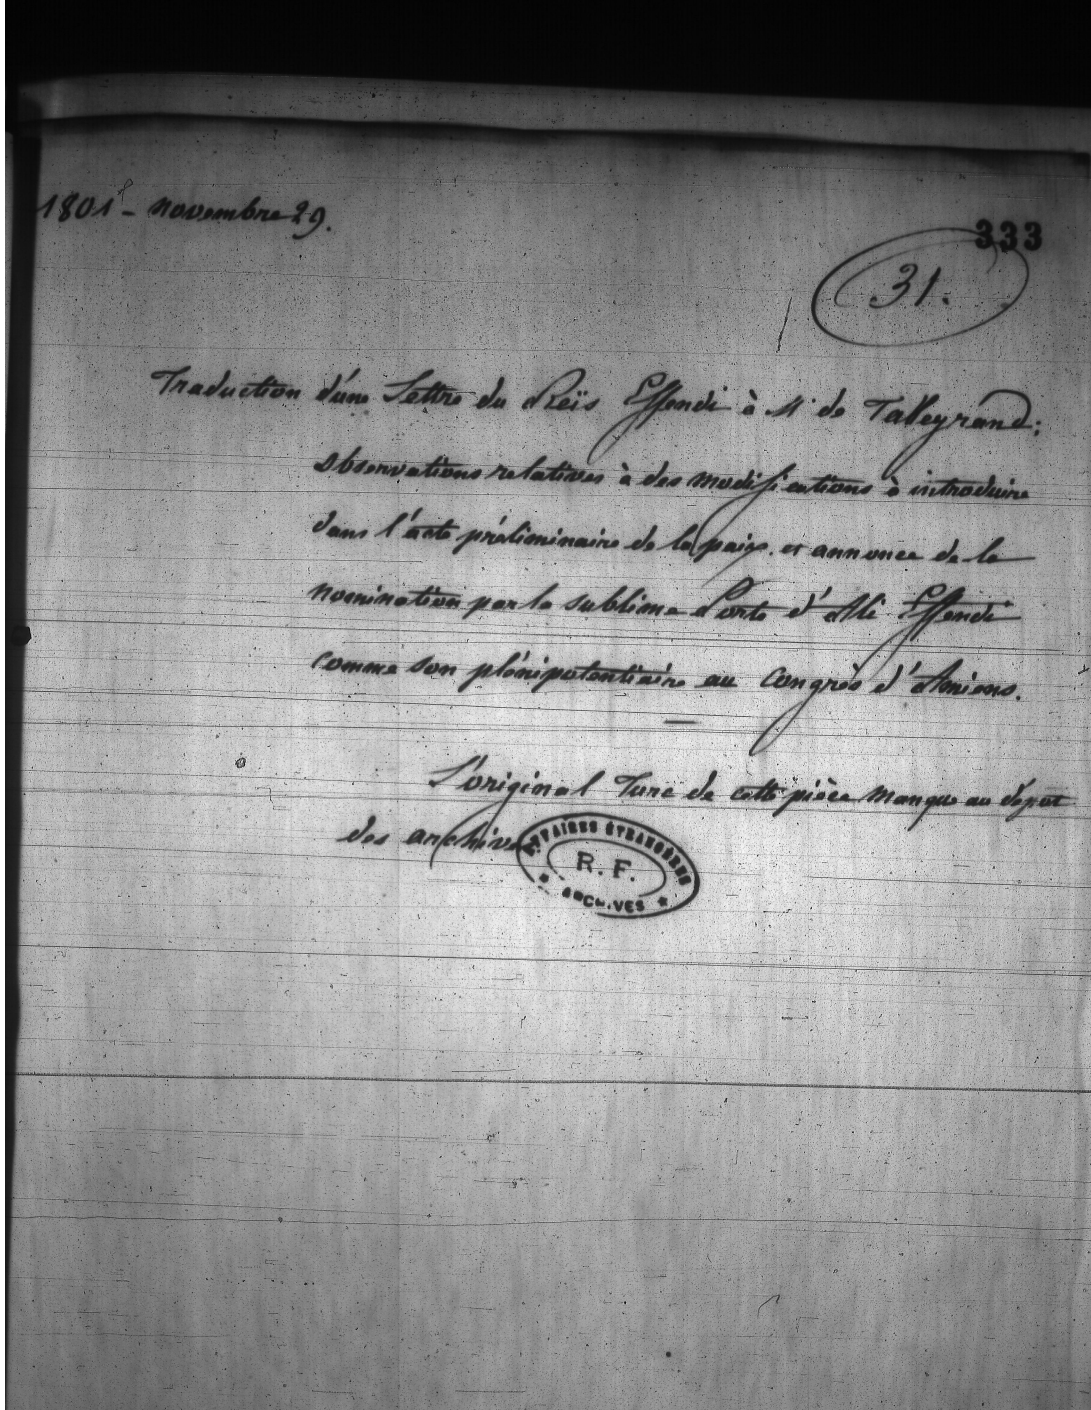 1801 - novembre 29.
333
31.
Traduction d'une Lettre du Reïs Effendi à Mr de Talleyrand;
observations relatives à des modifications à introduire
dans l'acte préliminaire de la paix et annonce de la
nomination par la sublime Porte d'Ali Effendi
comme son plénipotentiaire au Congrès d'Amiens.
L'original Turc de cette pièce manque au dépot
des archives.
AFFAIRES ÉTRANGÈRES
R. F.
ARCHIVES